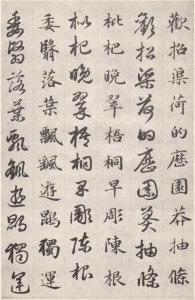 歡招渠荷的歷園莽抽條
歡招渠荷的歷園莽抽條
枇杷晚翠梧桐早彫陳根
枇杷晚翠梧桐早彫陳根
委翳落葉飄颻遊鵾獨運
委翳落葉飄颻遊鵾獨運